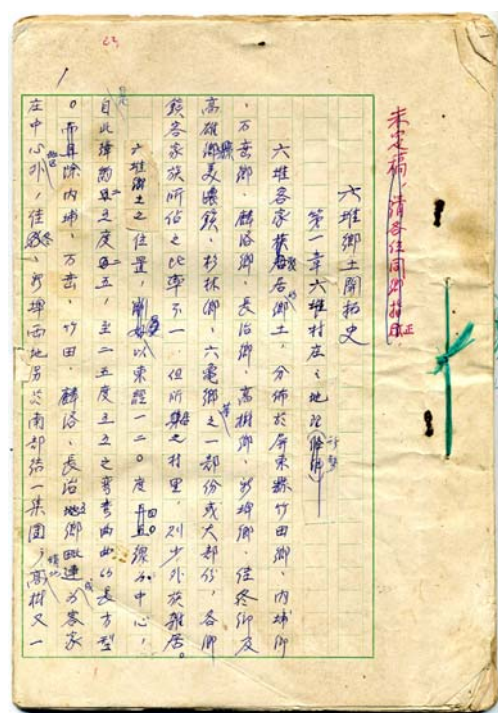 未定稿,請各位同鄉指正
六堆鄉土開拓史
第一章六堆村庄之地理
六堆客家族居鄉土,分佈於屏東縣竹田鄉、內埔鄉
、万巒鄉、麟洛鄉、長治鄉、高樹鄉、新埤鄉、佳冬鄉及
高雄縣美濃鎮,杉林鄉,六龜鄉之一部份或大部份,各鄉
鎮客家族所佔之比率不一 但所集之村里,則少外族雜居。
六堆鄉土之位置,以東經一二〇度線為中心,
自北緯 度 五,至二五度 五之彎彎曲曲的長方型
。而且除內埔、万巒、竹田、麟洛、長治 鄉毗連為客家
庄中心外,佳冬,新埤兩地另於南部結一集團,高樹又一